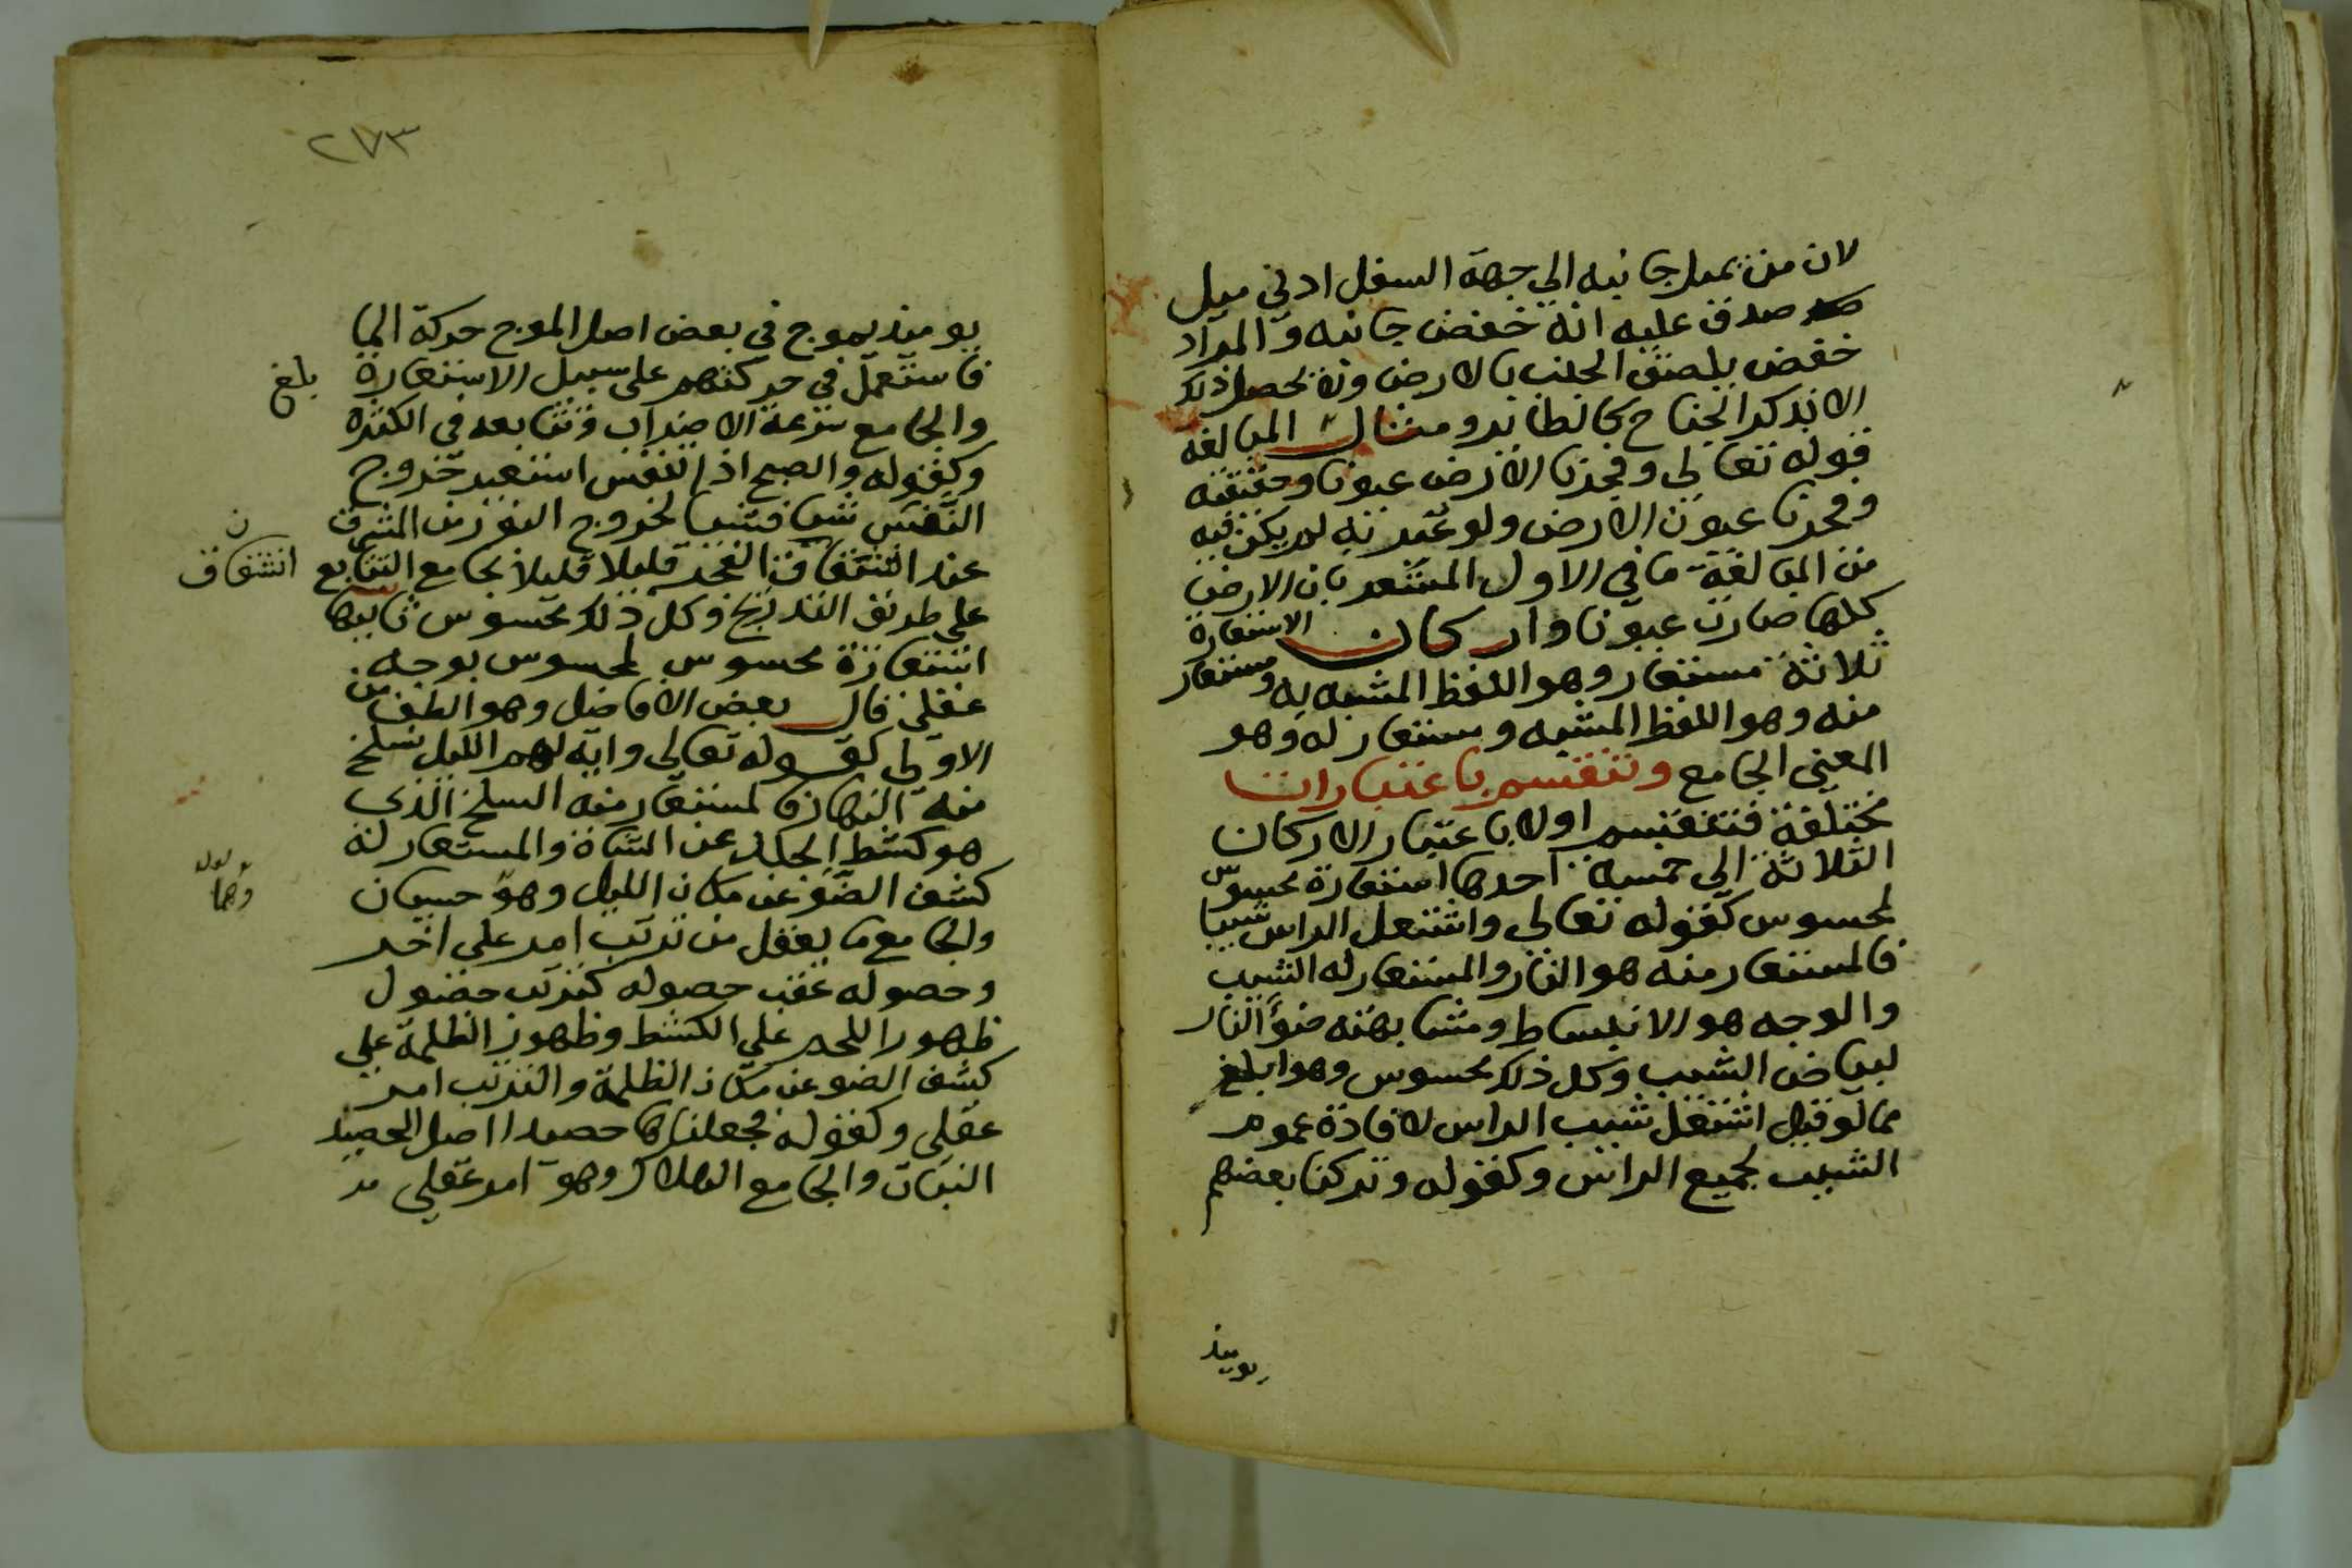 لان من يميل جانبه الي جهة السفل ادني ميل
صدق عليه انه خفض جانبه والمراد
خفض يلصق الجنب بالارض ولا يحصل ذلك
الا بذكر الجناح كالطاير ومثال المبالغة
قوله تعالي وفجرنا الارض عيونا وحقيقته
وفجرنا عيون الارض ولو عبر به لم يكن فيه
من المبالغة ما في الاول المشعر بان الارض
كلها صارت عيونا واركان الاستعارة
ثلاثة مستعار وهو اللفظ المشبه به ومستعار
منه وهو اللفظ المشبه ومستعار له وهو
المعني الجامع وتنقسم باعتبارات
مختلفة فتنقسم اولا باعتبار الاركان
الثلاثة الي خمسة احدها استعارة محسوس
لمحسوس كقوله تعالي واشتعل الراس شيبا
فالمستعار منه هو النار والمستعار له الشيب
والوجه هو الانبساط ومشابهته ضوء النار
لبياض الشيب وكل ذلك محسوس وهو ابلغ
مما لو قيل اشتعل شيب الراس لافادة عموم
الشيب لجميع الراس وكقوله وتركنا بعضهم
يوميذ
٢٧٣
يوميذ يموج في بعض اصل الموج حركة الما
فاستعمل في حركتهم علي سبيل الاستعارة
بلغ
والجامع سرعة الاضطراب وتتابعه في الكثرة
وكقوله والصبح اذا تنفس استعير خروج
النفس شيا فشيا لخروج النور من المشرق
عند انشقاق الفجر قليلا قليلا بجامع التتابع
ن
انشقاق
علي طريق التدريج وكل ذلك محسوس ثانيها
استعارة محسوس لمحسوس بوجه
عقلي قال بعض الافاضل وهو الطف من
الاولي كقوله تعالي واية لهم الليل نسلخ
منه النهار فالمستعار منه السلخ الذي
هو كشط الجلد عن الشاة والمستعار له
كشف الضو عن مكان الليل وهو حسيان
وهما
والجامع ما يعقل من ترتب امر علي اخر
وحصوله عقب حصوله كترتب حصول
ظهور اللحم علي الكشط وظهور الظلمة علي
كشف الضو عن مكان الظلمة والترتب امر
عقلي وكقوله فجعلناها حصيدا اصل الحصيد
النبات والجامع الهلاك وهو امر عقلي